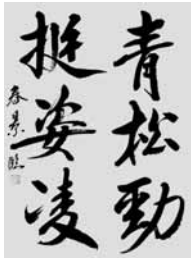 青松勁
挺姿凌
春景臨